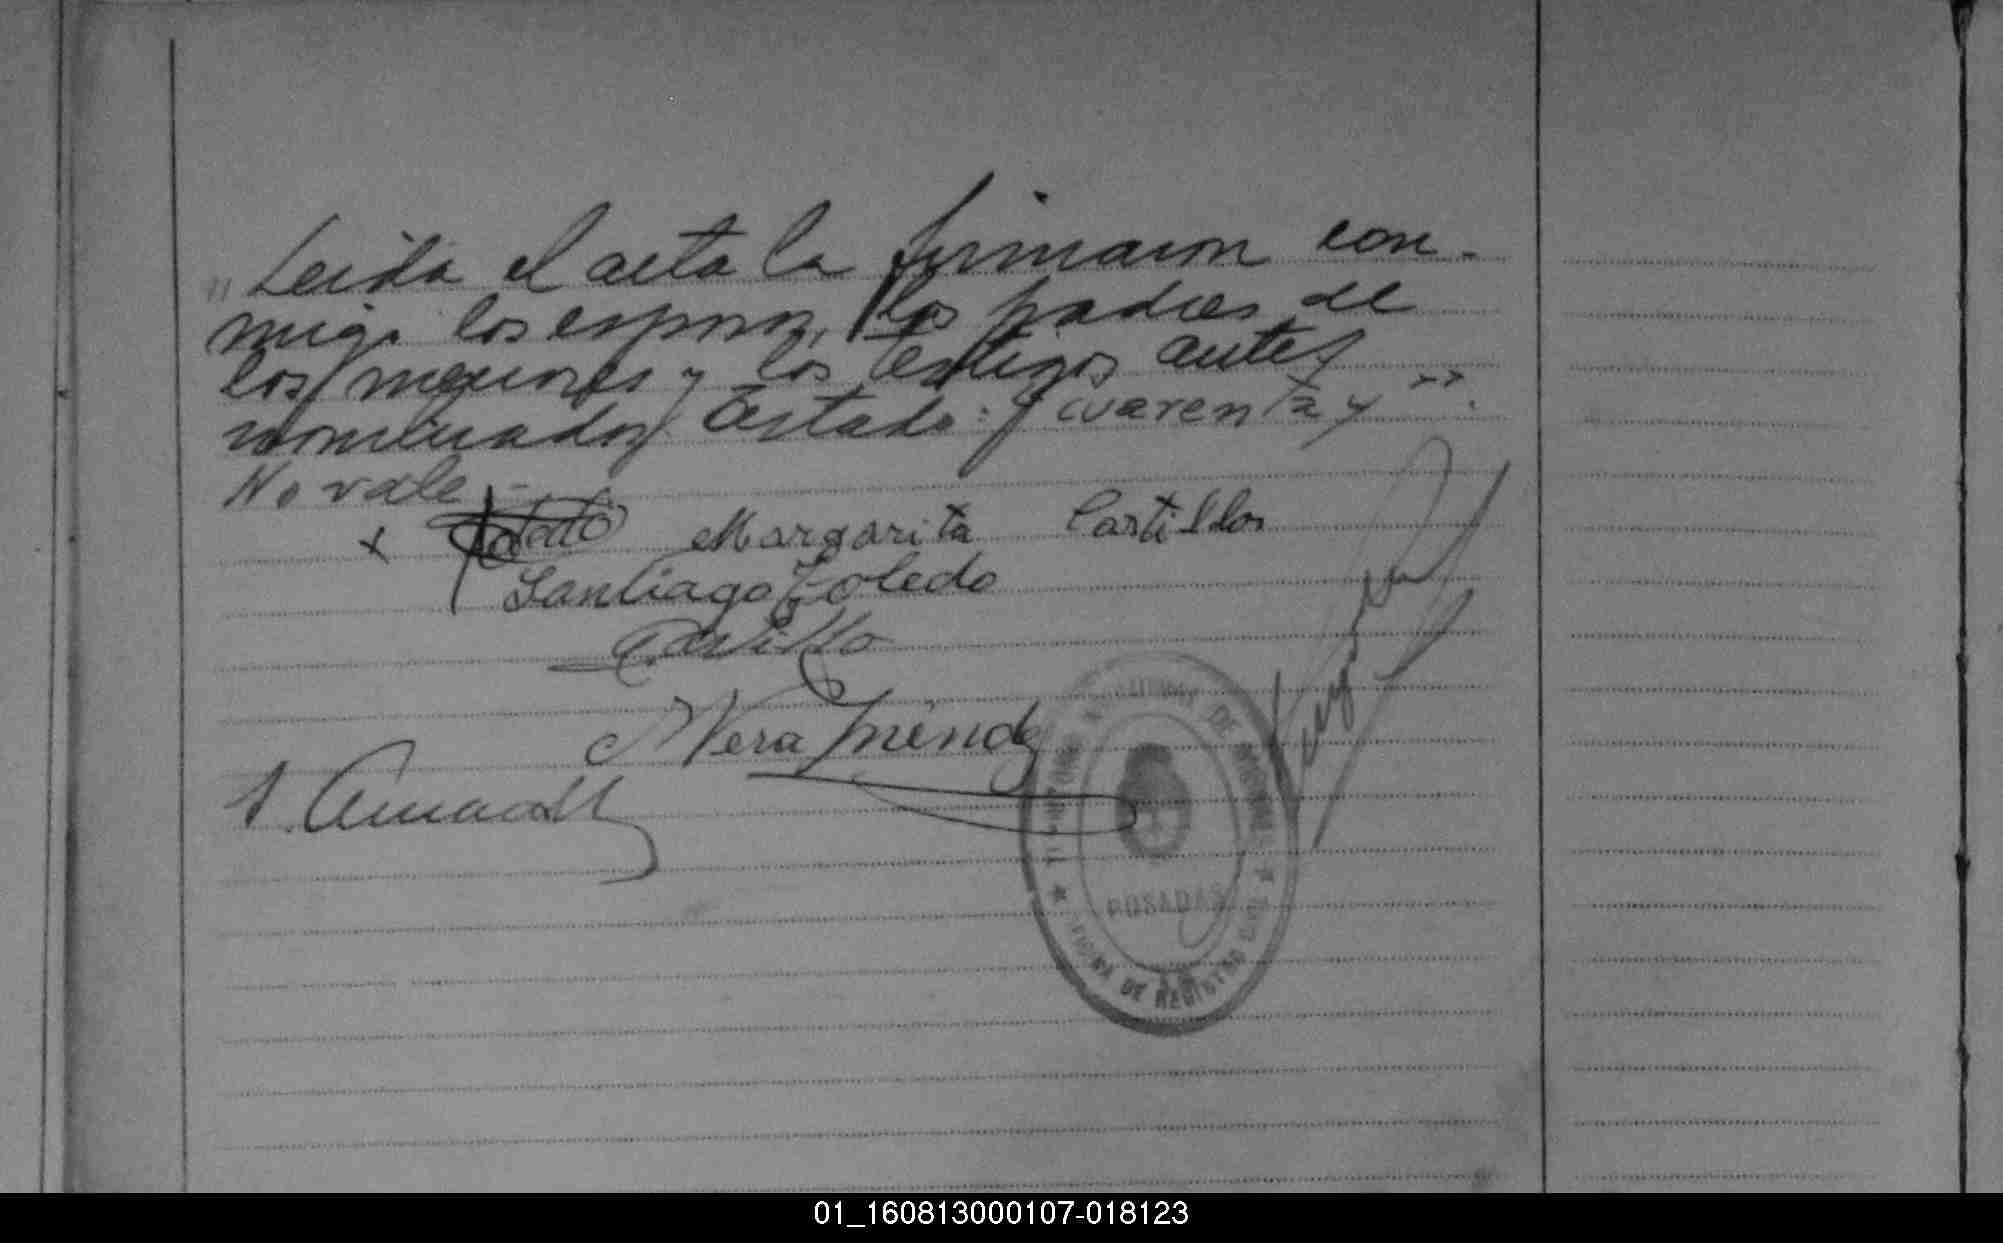 " Leida el acta la firmaron con-
migo los esposos, los padres de
los menores y los testigos antes
nominados. Testado: "cuarenta y".
No vale.-
x Margarita Castillos
Santiago Toledo
Castillo
Vera Méndez
TERRITORIO NACIONAL DE MISIONES
POSADAS
OFICINA DE REGISTRO CIVIL
01_160813000107-018123